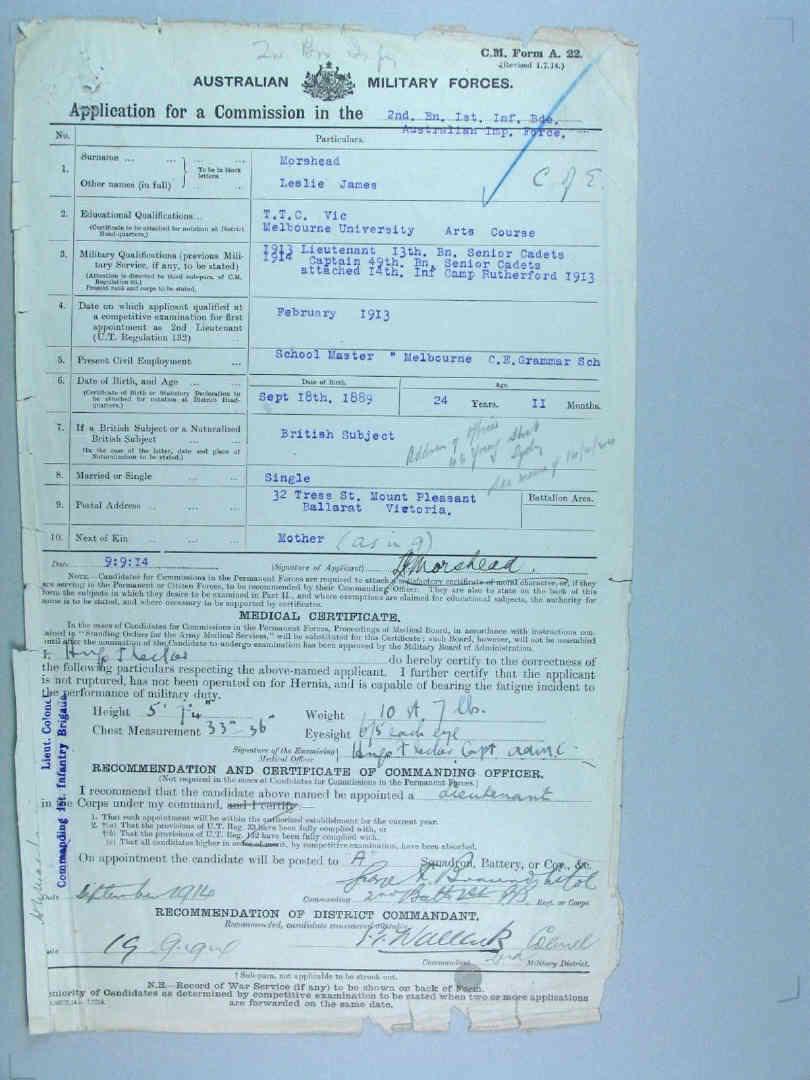 C.M. Form A. 22.
(Revised 1.7.14.)
AUSTRALIAN MILITARY FORCES.
Application for a Commission in the 2nd. Bn. 1st. Inf. Bde.
Australian Imp. Force.
No. Particulars.
1. Surname ... Morshead
To be in block letters
Other names (in full) Leslie James
C of E.
2. Educational Qualifications... T.T.C. Vic
(Certificate to be attached for notation at District Head-quarters.) Melbourne University Arts Course
3. Military Qualifications (previous Military Service, if any, to be stated) 1913 Lieutenant 13th. Bn. Senior Cadets
1914 Captain 49th. Bn. Senior Cadets
(Attention is directed to third sub-para. of C.M. Regulation
Present rank and corps to be stated. attached 14th. Inf Camp Rutherford 1913
4. Date on which applicant qualified at a competitive examination for first appointment as 2nd Lieutenant (U.T. Regulation 132) February 1913
5. Present Civil Employment ... School Master " Melbourne C.E.Grammar Sch
6. Date of Birth, and Age ... Date of Birth. Age.
(Certificate of Birth or Statutory Declaration to be attached for notation at District Head-quarters.) Sept 18th. 1889 24 Years. II Months.
7. If a British Subject or a Naturalised British Subject British Subject
(In the case of the latter, date and place of Naturalization to be stated.)
Address of office
8. Married or Single Single
9. Postal Address 32 Tress St. Mount Pleasant
Ballarat Victoria.
Battalion Area.
10. Next of Kin Mother (as in 9)
Date 9:9:14 (Signature of Applicant) L J Morshead.
NOTE.—Candidates for Commissions in the Permanent Forces are required to attach a satisfactory certificate of moral character, or, if they
are serving in the Permanent or Citizen Forces, to be recommended by their Commanding Officer. They are also to state on the back of this
form the subjects in which they desire to be examined in Part II., and where exemptions are claimed for educational subjects, the authority for
same is to be stated, and where necessary to be supported by certificates.
MEDICAL CERTIFICATE.
In the cases of Candidates for Commissions in the Permanent Forces, Proceedings of Medical Board, in accordance with instructions con-
tained in "Standing Orders for the Army Medical Services," will be substituted for this Certificate; such Board, however, will not be assembled
until after the nomination of the Candidate to undergo examination has been approved by the Military Board of Administration.
I, do hereby certify to the correctness of
the following particulars respecting the above-named applicant. I further certify that the applicant
is not ruptured, has not been operated on for Hernia, and is capable of bearing the fatigue incident to
the performance of military duty.
Height 5' 7¼" Weight 10 st. 7 lbs.
Chest Measurement 33"-36" Eyesight 6/5 each eye
Signature of the Examining Medical Officer Capt AAMC
Lieut. Colonel
Commanding 1st. Infantry Brigade
RECOMMENDATION AND CERTIFICATE OF COMMANDING OFFICER.
(Not required in the cases of Candidates for Commissions in the Permanent Forces.)
I recommend that the candidate above named be appointed a Lieutenant
in the Corps under my command, and I certify.—
1. That such appointment will be within the authorized establishment for the current year.
2. *(a) That the provisions of U.T. Reg. have been fully complied with, or
†(b) That the provisions of U.T. Reg. 132 have been fully complied with.
(c) That all candidates higher in order of merit, by competitive examination, have been absorbed.
On appointment the candidate will be posted to A Squadron, Battery, or Coy., &c.
Date September 1914 Commanding 2nd Regt. or Corps
RECOMMENDATION OF DISTRICT COMMANDANT.
Recommended,
Date 19.9.914 Wallack Colonel
Commandant 2nd Military District.
† Sub-para. not applicable to be struck out.
N.B.—Record of War Service (if any) to be shown on back of Form.
Seniority of Candidates as determined by competitive examination to be stated when two or more applications
are forwarded on the same date.